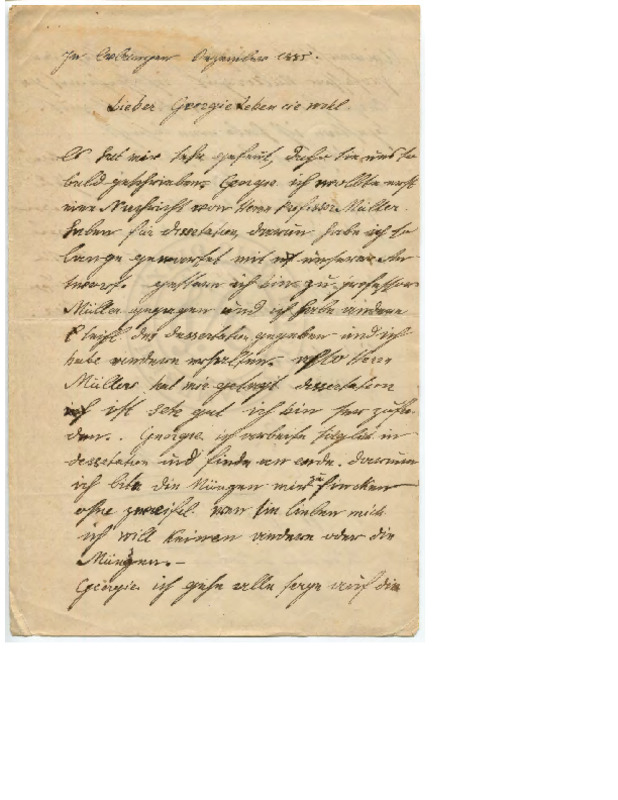 In Erlangen Dezember 1885.
Lieber Georgie Leben sie wohl
Es hat mir sehr gefreut, dass sie uns so
bald geschrieben, Georgie ich wollte erst
eine Nachricht von Herr Professor Müller
haben für dissetation, darum habe ich so
lange gewartet mit unserer Ant
twort. gestern ich bin zu professor
Müller gegangen und ich habe andere
theihl des dessertation gegeben und ich
habe andere erhalten. also Herr
Müller hat mir gesagt dessertation
ist sehr gut ich bin zufrie
den. Georgie ich arbeite täglich in
dessetation und finde an ende. darum
ich bite die Müngen mir zu
ohne zweifel. wen Sie lieben mich
ich will keinen andere oder die
Müngen.-
Georgie ich gehe alle tage auf die